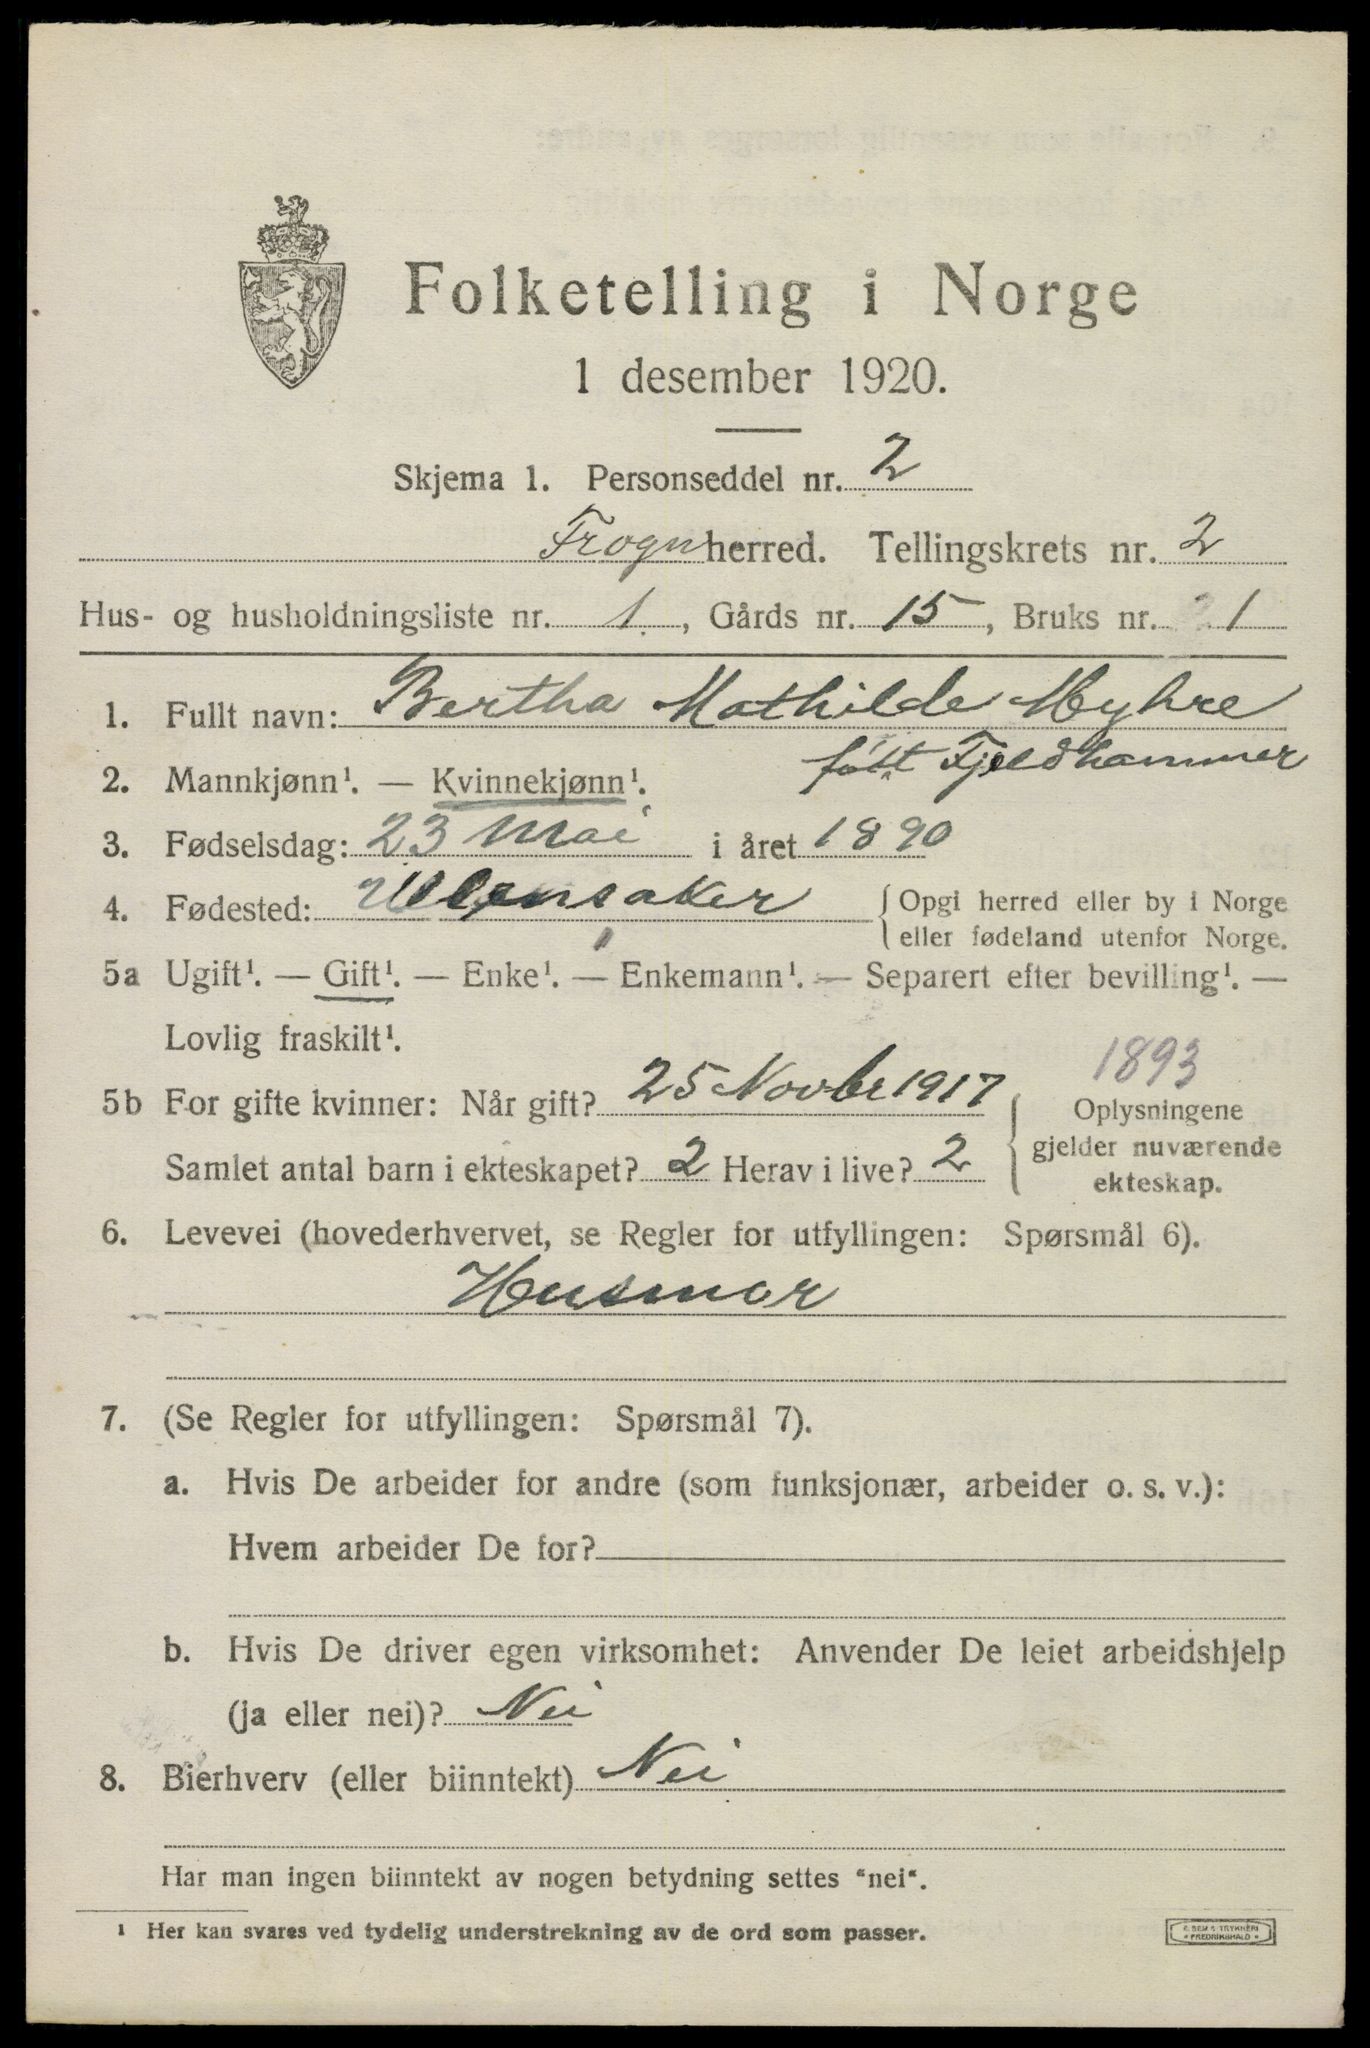 Folketelling i Norge
1 desember 1920.
Skjema 1. Personseddel nr. 2
Frogn herred. Tellingskrets nr. 2
Hus- og husholdningsliste nr. 1, Gårds nr. 15, Bruks nr. 21
1. Fullt navn: Bertha Mathilde Myhre
født Fjeldhammer
2. Mannkjønn¹. — Kvinnekjønn¹.
3. Fødselsdag: 23 Mai i året 1890
4. Fødested: Ullensaker { Opgi herred eller by i Norge
eller fødeland utenfor Norge.
5a Ugift¹. — Gift¹. — Enke¹. — Enkemann¹. — Separert efter bevilling¹. —
Lovlig fraskilt¹.
1893
5b For gifte kvinner: Når gift? 25 Novbr 1917 { Oplysningene
gjelder nuværende
ekteskap.
Samlet antal barn i ekteskapet? 2 Herav i live? 2
6. Levevei (hovederhvervet, se Regler for utfyllingen: Spørsmål 6).
Husmor
7. (Se Regler for utfyllingen: Spørsmål 7).
a. Hvis De arbeider for andre (som funksjonær, arbeider o. s. v.):
Hvem arbeider De for?
b. Hvis De driver egen virksomhet: Anvender De leiet arbeidshjelp
(ja eller nei)? Nei
8. Bierhverv (eller biinntekt) Nei
Har man ingen biinntekt av nogen betydning settes "nei".
¹ Her kan svares ved tydelig understrekning av de ord som passer.
E. SEM'S TRYKKERI
FREDRIKSHALD